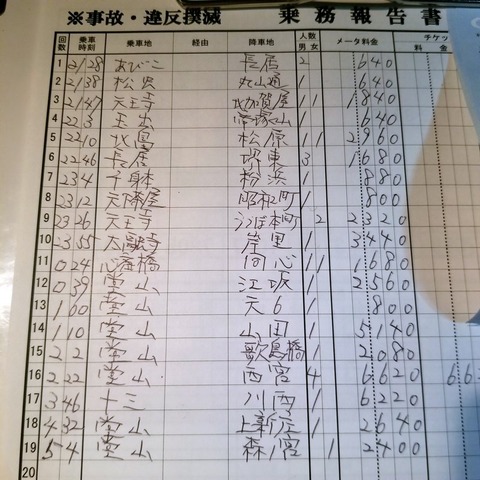 ※事故・違反撲滅 乗務報告書
回数 乗車時刻 乗車地 経由 降車地 人数 男 女 メータ料金 チケッ 料 金
1 21 28 あびこ 長居 2 640
2 21 38 松虫 丸山通 1 640
3 21 47 天王寺 北加賀屋 1 1 1840
4 22 3 玉出 帝塚山 1 640
5 22 10 北畠 松原 1 1 2960
6 22 46 長居 東 3 1680
7 23 4 千身体 粉浜 1 800
8 23 12 天下茶屋 昭和町 1 800
9 23 26 天王寺 うつぼ本町 2 2320
10 23 55 大融寺 岸里 1 3440
11 0 24 心斎橋 同心 1 1 1680
12 0 39 堂山 江坂 1 2560
13 1 00 堂山 天6 1 800
14 1 10 堂山 山田 1 5140
15 2 2 堂山 歌島橋 1 2080
16 2 22 堂山 西宮 4 6620 66
17 3 46 十三 川西 1 6220
18 4 32 堂山 上新庄 1 2640
19 5 4 堂山 森ノ宮 1 2400
20